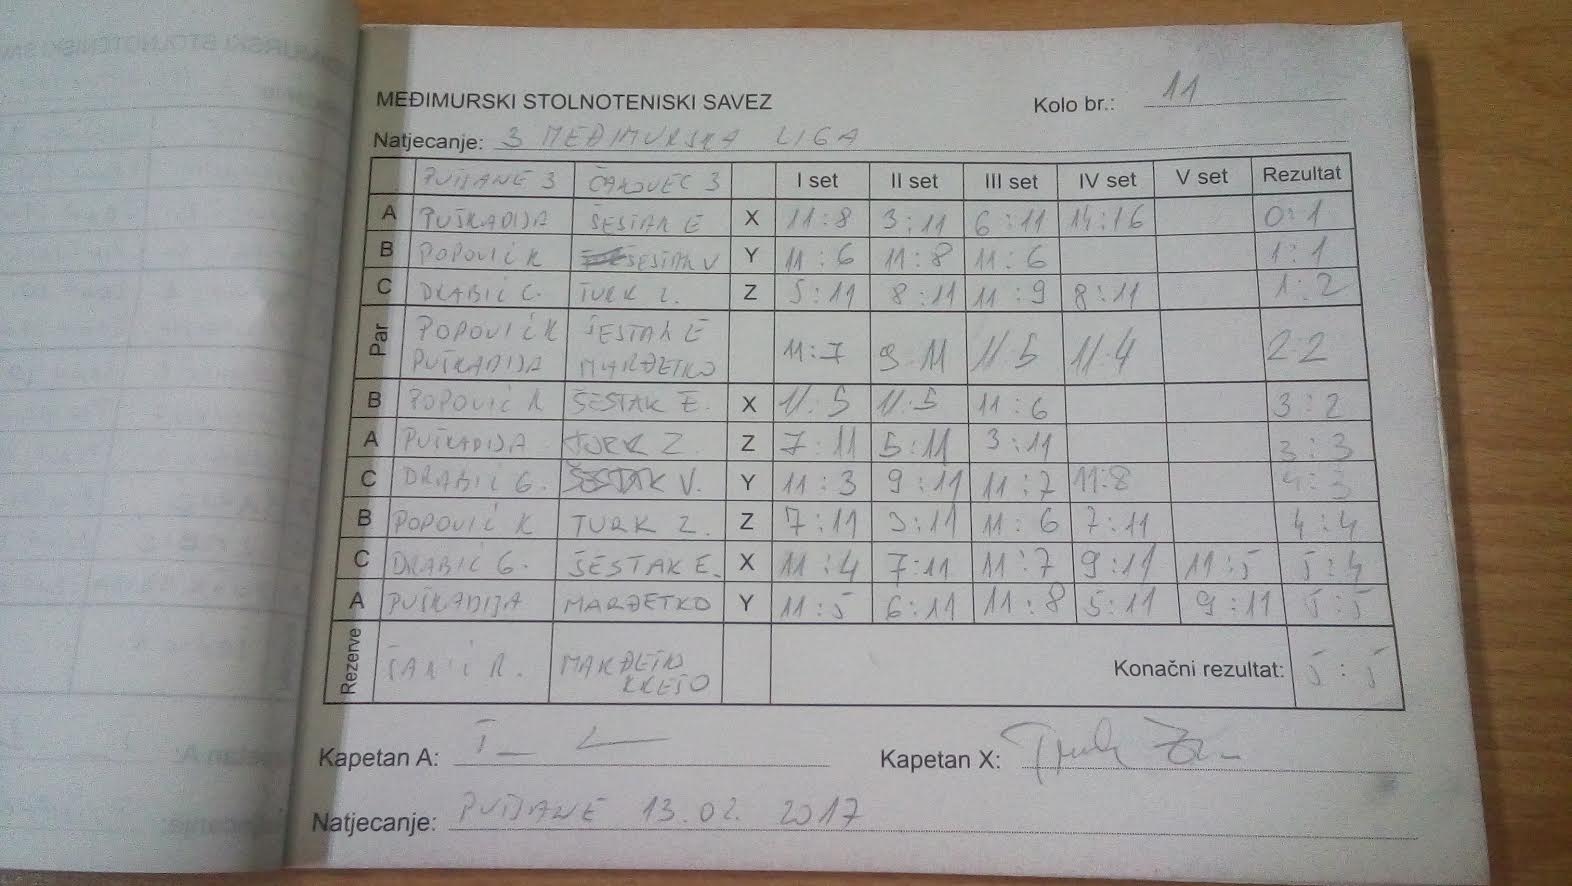 MEĐIMURSKI STOLNOTENISKI SAVEZ Kolo br.: 11
Natjecanje: 3 MEĐIMURSKA LIGA
PUŠĆANE 3 ČAKOVEC 3 I set II set III set IV set V set Rezultat
A PUŠKADIJA ŠESTAK E X 11:8 3:11 6:11 14:16 0:1
B POPOVIĆ K ŠESTAK V Y 11:6 11:8 11:6 1:1
C DRABIĆ G. TURK Z. Z 5:11 8:11 11:9 8:11 1:2
Par POPOVIĆ K ŠESTAK E 11:7 9:11 11:5 11:4 2:2
PUŠKADIJA MARĐETKO
B POPOVIĆ K ŠESTAK E. X 11:5 11:5 11:6 3:2
A PUŠKADIJA TURK Z. Z 7:11 5:11 3:11 3:3
C DRABIĆ G. ŠESTAK V. Y 11:3 9:11 11:7 11:8 4:3
B POPOVIĆ K TURK Z. Z 7:11 3:11 11:6 7:11 4:4
C DRABIĆ G. ŠESTAK E. X 11:4 7:11 11:7 9:11 11:5 5:4
A PUŠKADIJA MARĐETKO Y 11:5 6:11 11:8 5:11 9:11 5:5
Rezerve MARĐETKO Konačni rezultat: 5:5
KREŠO
Kapetan A: Kapetan X:
Natjecanje: 13.02.2017